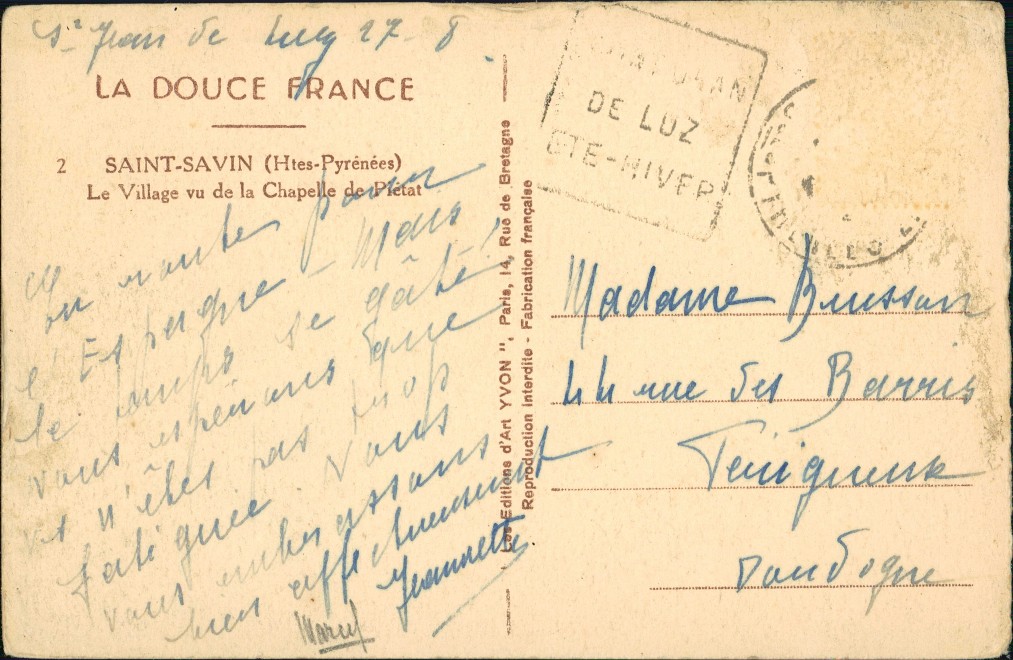 St Jean de Luz 27-8
LA DOUCE FRANCE
2 SAINT-SAVIN (Htes-Pyrénées)
Le Village vu de la Chapelle de Piétat
en route pour
l'Espagne - Mais
le temps se gâte,
vous espérons que
vs n'êtes pas trop
fatiguée vous
vous embrassons
bien affectueusement
Jeannette
Marcel
Les Editions d'Art YVON", Paris, 14, Rue de Bretagne
Reproduction interdite - Fabrication française
SAINT JEAN
DE LUZ
ETE-HIVER
Madame Busson
44 rue des Barris
Périgueux
Dordogne